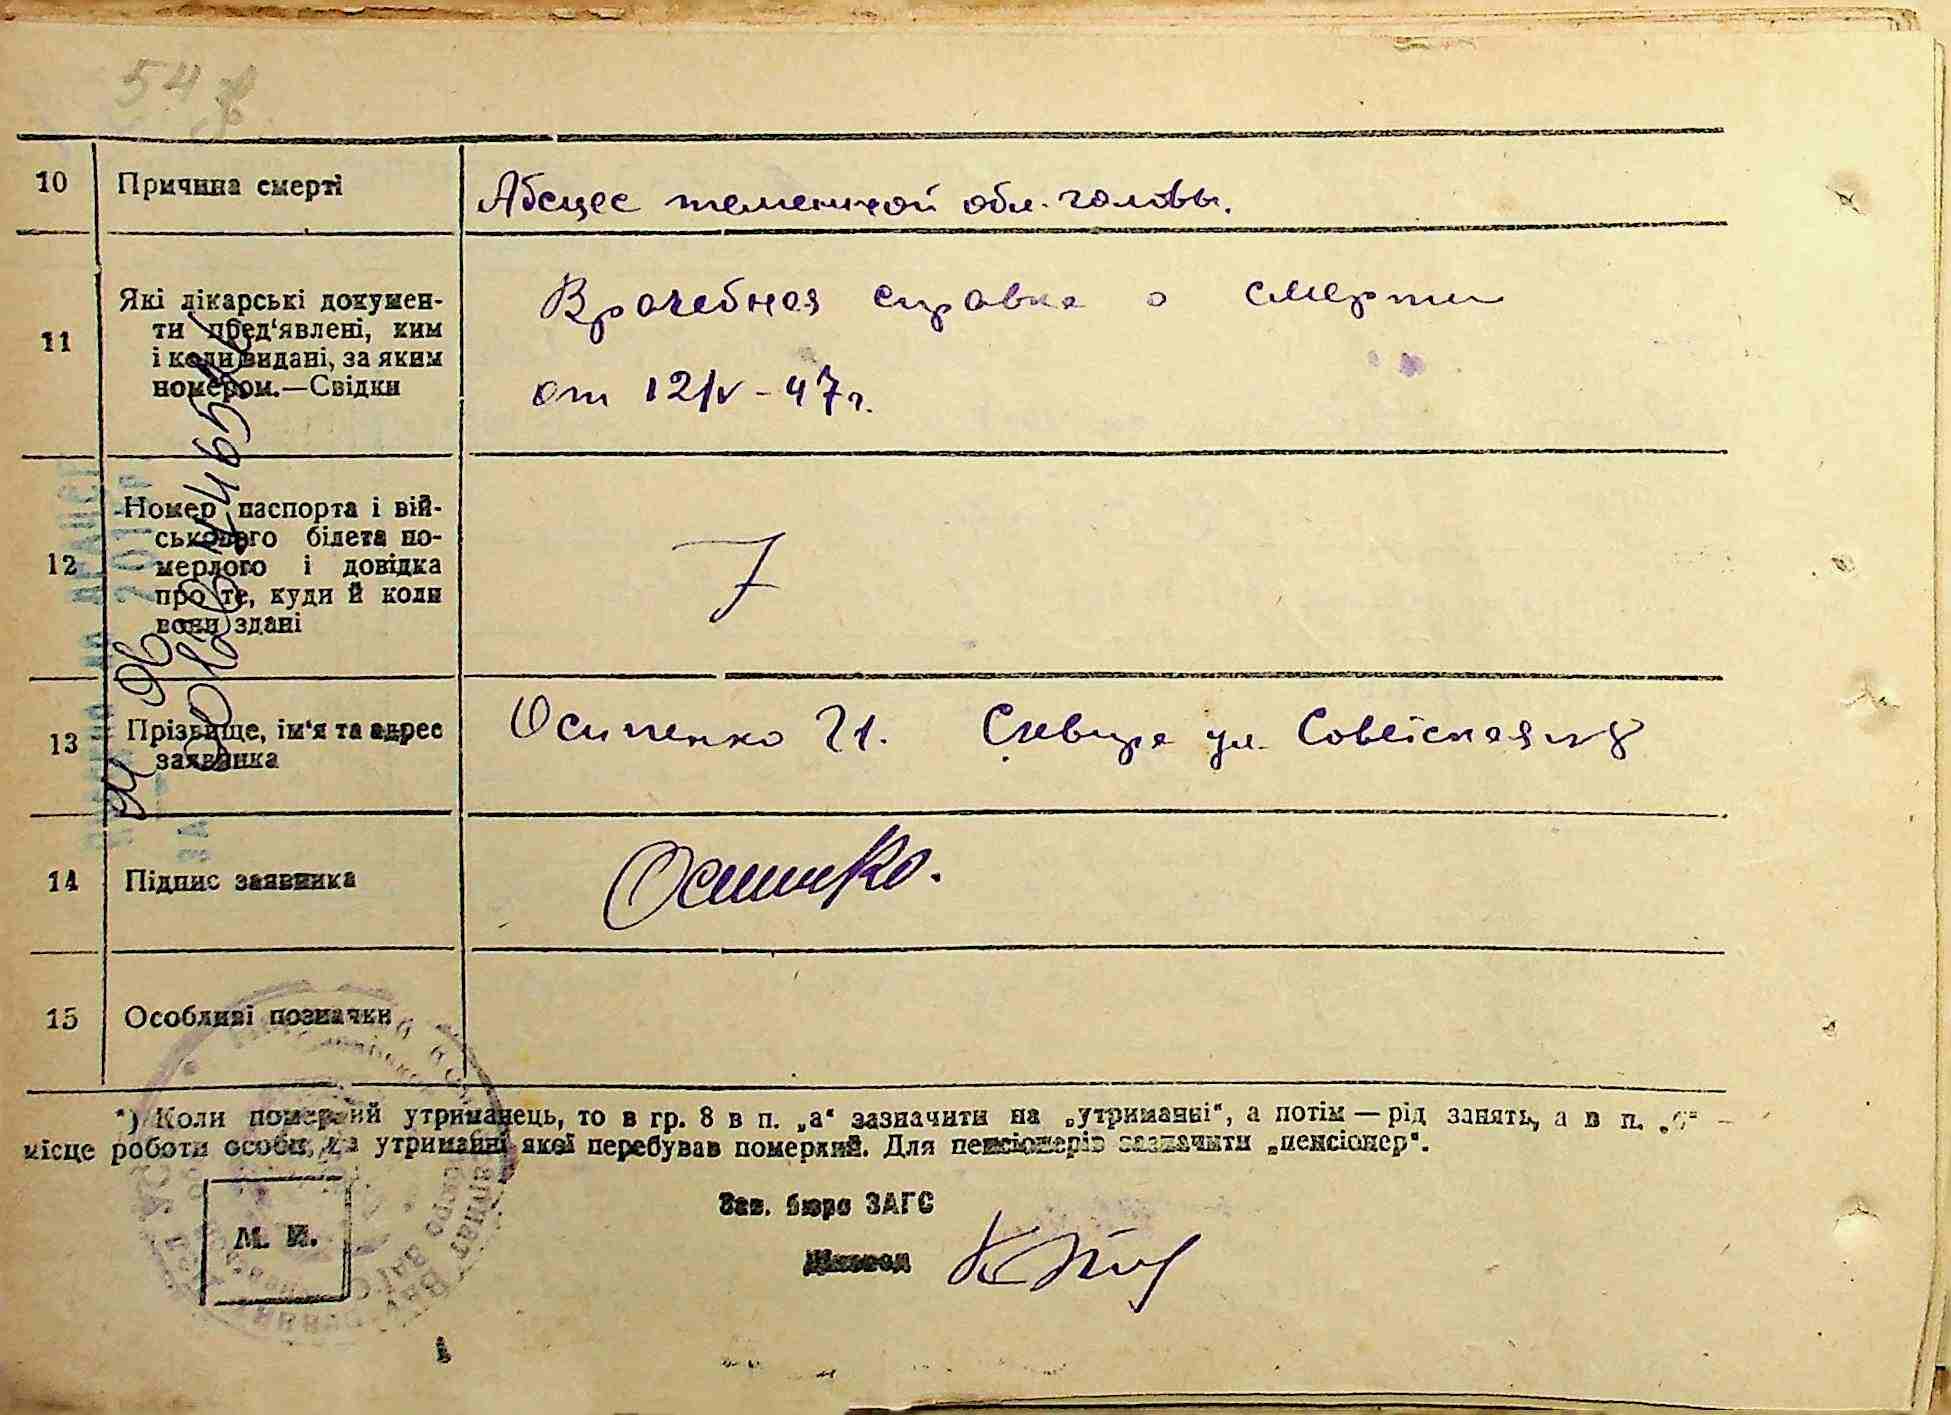 54
10 Причина смерті Абсцес теменной обл. головы.
11 Які лікарські докумен-
ти пред'явлені, ким
і коли видані, за яким
номером.—Свідки
Врачебная справка о смерти
от 12/V - 47 г.
12 Номер паспорта і вій-
ськового білета по-
мерлого і довідка
про те, куди й коли
вони здані
13 Прізвище, ім'я та адрес
заявника
Осипенко Сквира ул. Советская 8
14 Підпис заявника
15 Особливі позначки
*) Коли померлий утриманець, то в гр. 8 в п. „а“ зазначити на „утриманні“, а потім — рід занять, а в п. „б“ —
місце роботи особи, на утриманні якої перебував померлий. Для пенсіонерів зазначити „пенсіонер“.
М. П.
Зав. бюро ЗАГС
Діловод